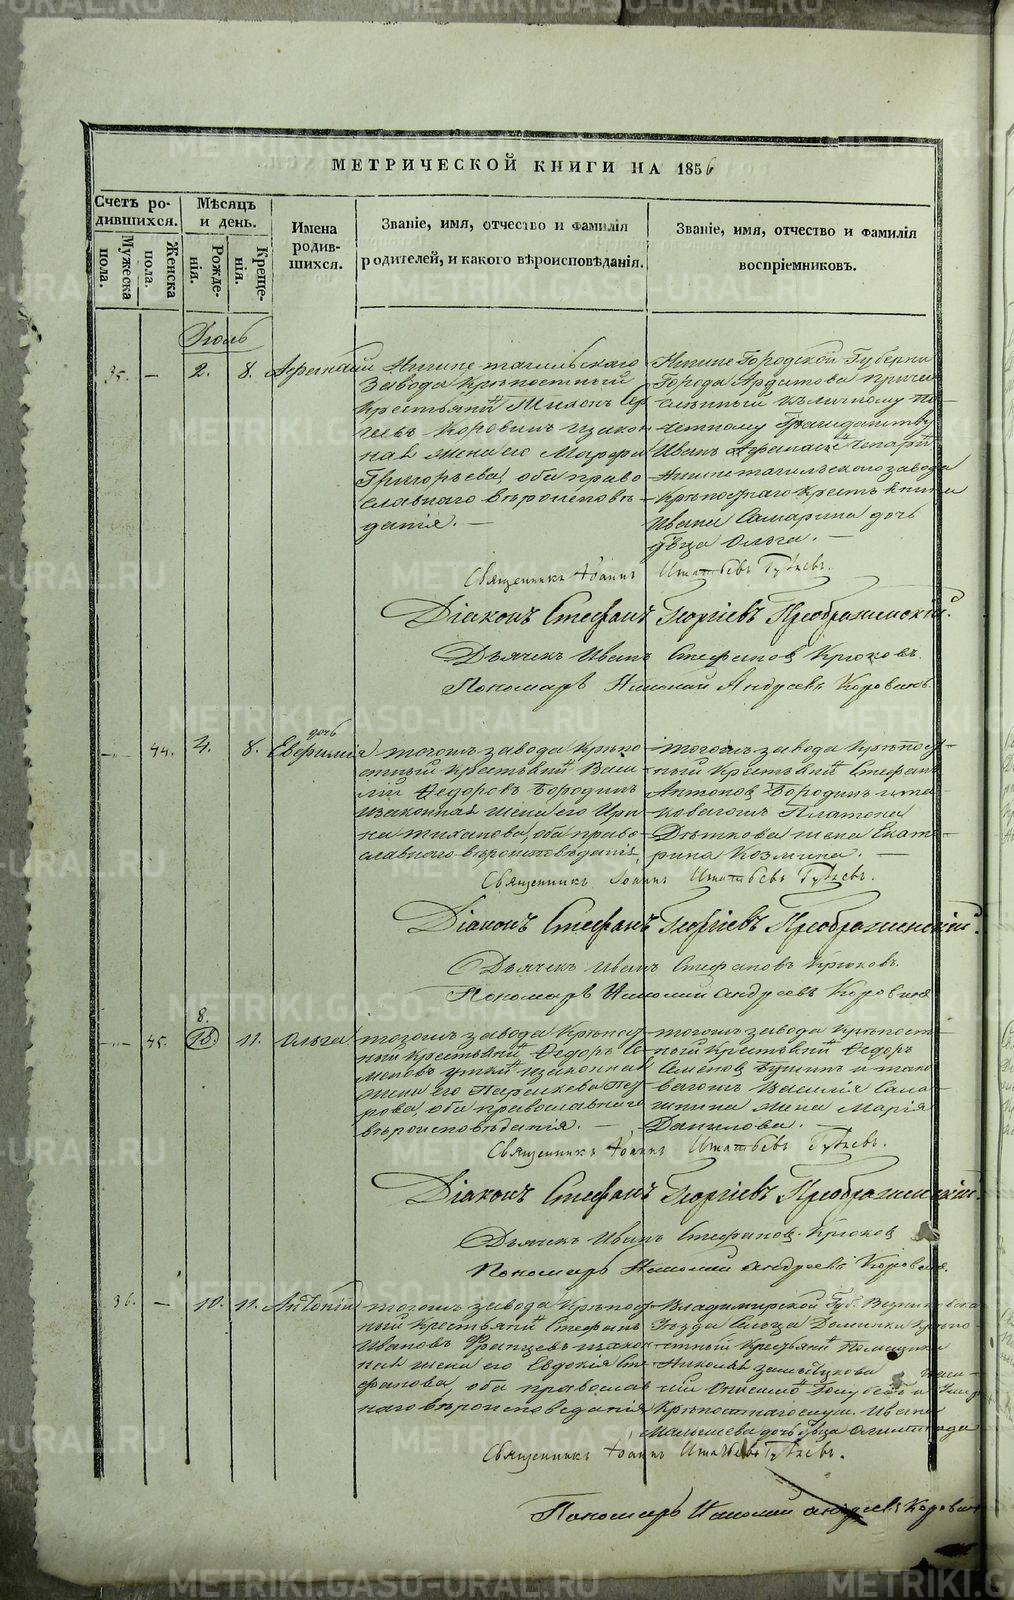 МЕТРИЧЕСКОЙ КНИГИ НА 1856
Счетъ ро-
дившихся.
Мужеска
пола.
Женска
пола.
Мѣсяцъ
и день.
Рожде-
нія.
Креще-
нія.
Имена
родив-
шихся.
Званіе, имя, отчество и фамилія
родителей, и какого вѣроисповѣданія.
Званіе, имя, отчество и фамилія
воспріемниковъ.
Іюль
35. — 2. 8.
Нижне тагильскаго
завода крѣпостный
крестьянинъ Тихонъ Сер
геевъ Коровинъ и закон
ная жена его Марфа
Григорьева, оба право
славнаго вѣроисповѣ-
данія. —
Ниже Городской Губерни
Города Ардатова причи
сленный къ личному по-
четному Гражданству
Иванъ
Нижнетагильскаго завода
крѣпостнаго крестьянина
Ивана Самарина дочь
дѣвица Ольга. —
Священникъ Іоаннъ
Діаконъ Стефанъ Георгіевъ Преображенскій.
Дьячекъ Иванъ Стефановъ Крюковъ.
Пономарь Николай Андреевъ Коровинъ.
— 44. 4. 8.
дочь
Евфимія
тогожъ завода крѣпо
стный крестьянинъ Васи
лій Федоровъ Бородинъ
и законная жена его Ири
на Тиханова, оба право-
славнаго вѣроисповѣданія,
тогожъ завода крѣпост-
ный крестьянинъ Стефанъ
Антоновъ Бородинъ и та
коваго жъ Платона
жена Екате-
рина Козмина. —
Священникъ Іоаннъ
Діаконъ Стефанъ Георгіевъ Преображенскій.
Дьячекъ Иванъ Стефановъ Крюковъ.
Пономарь Николай Андреевъ Коровинъ
8.
— 45. 10. 11. Ольга
тогожъ завода крѣпост
ный крестьянинъ Федоръ Се
меновъ и законная
жена его Параскева Пет
рова, оба православнаго
вѣроисповѣданія. —
тогожъ завода крѣпост-
ный крестьянинъ Федоръ
Семеновъ и тако
вагожъ Василія
жена Марія
Данилова. —
Священникъ Іоаннъ
Діаконъ Стефанъ Георгіевъ Преображенскій.
Дьячекъ Иванъ Стефановъ Крюковъ
Пономарь Николай Андреевъ Коровинъ.
36. — 10. 11. Антоній
тогожъ завода крѣпост
ный крестьянинъ Стефанъ
Ивановъ и закон
ная жена его Евдокія Сте
фанова, оба православ
наго вѣроисповеданія
Владимирской Губ.
Уѣзда Сельца крѣпо-
стный крестьянинъ Помещика
Николая
крѣпостнаго Ивана
Малышева дочь дѣвица
Священникъ Іоаннъ
Пономарь Николай Андреевъ Коровинъ
METRIKI.GASO-URAL.RU